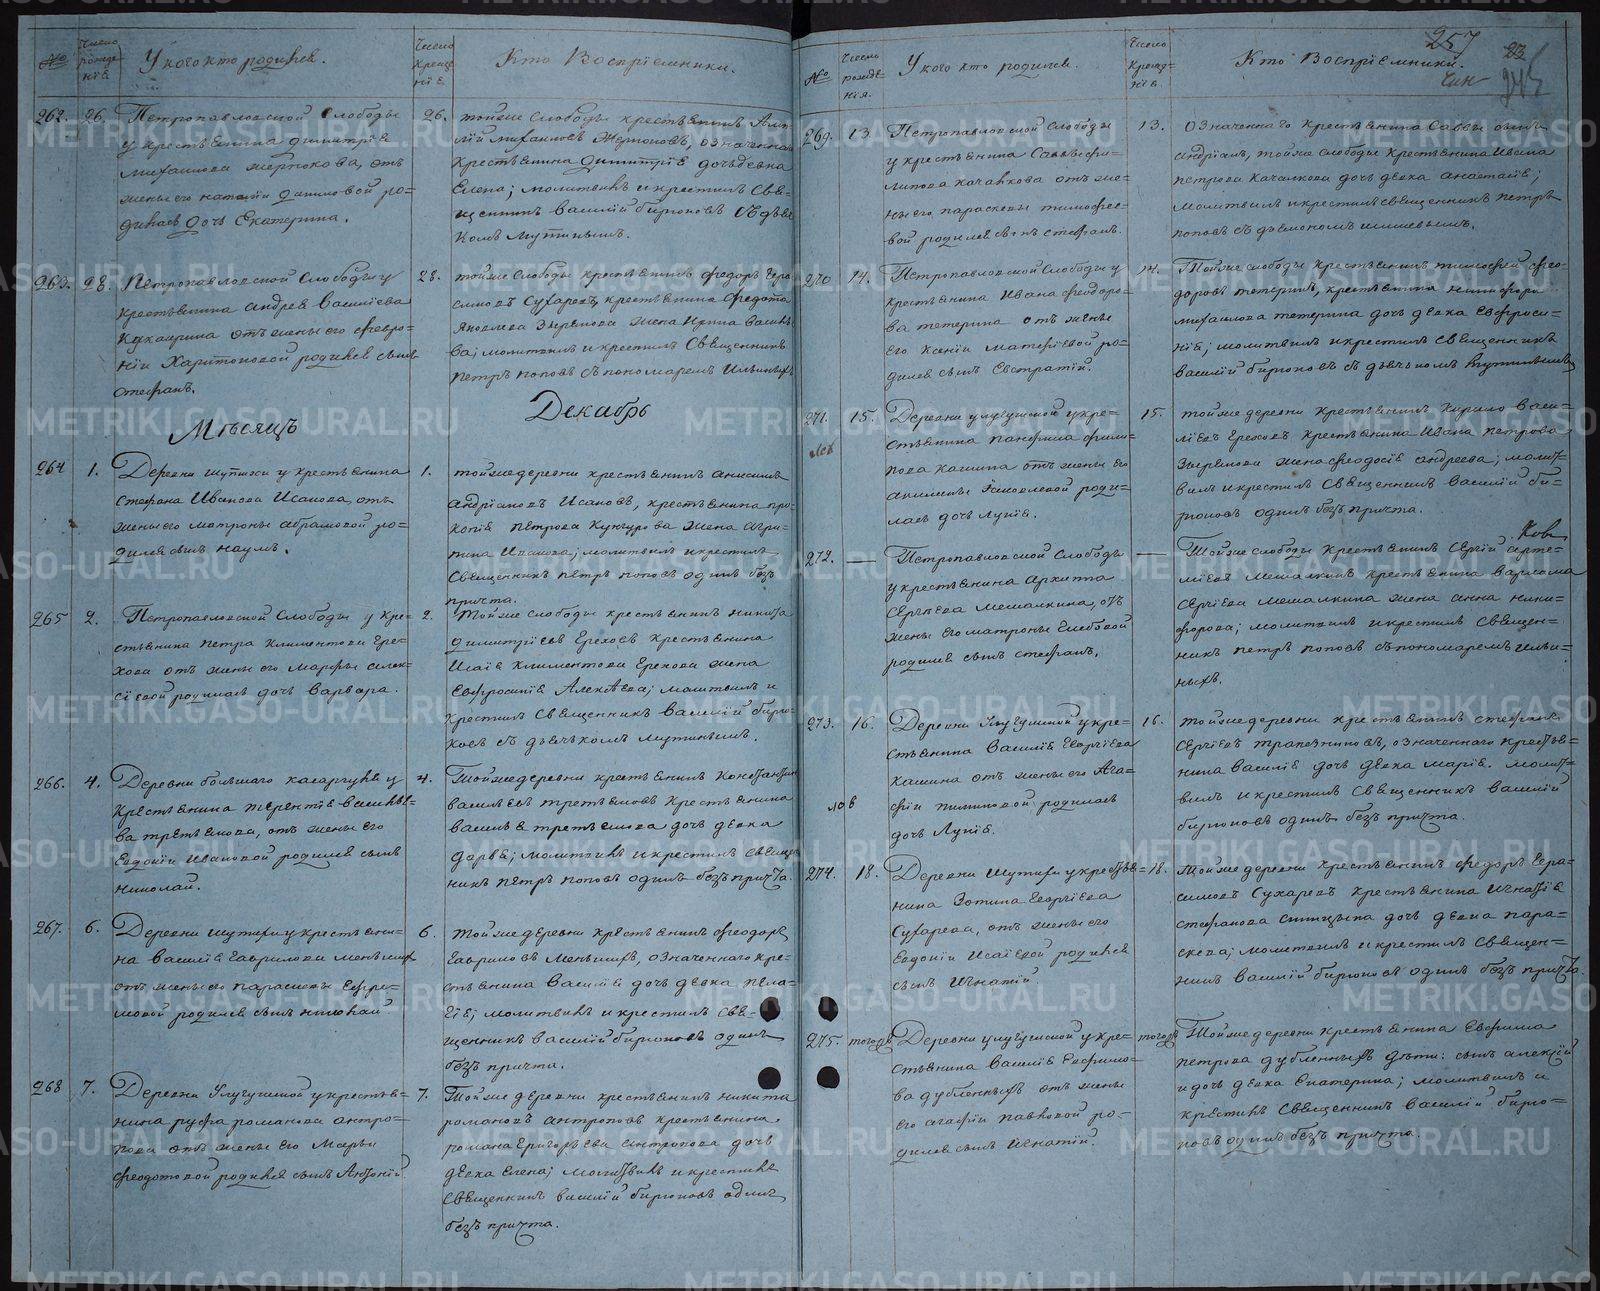 №
Число рождения
У кого кто родился.
Число крещения
Кто Восприемники.
262.
26.
Петропавловской Слободы
у крестьянина Димитрія
Михаилова отъ
жены его Наталіи Даниловой ро=
дилась дочь Екатерина.
26.
тойже Слободы крестьянинъ
Михаиловъ означеннаго
крестьянина Димитрія дочь девка
Елена; молитвилъ и крестилъ Свя=
щенникъ Василій Бирюковъ съ дьяч=
комъ Мутинымъ.
263.
28.
Петропавловской Слободы у
крестьянина Андрея Васильева
отъ жены его Февро=
ніи Харитоновой родился сынъ
Стефанъ.
28.
тойже Слободы крестьянинъ Федоръ Гера=
симовъ Сухаревъ, крестьянина Федота
Яковлева Зырянова жена Ирина Василье=
ва; молитвилъ и крестилъ Священникъ
Петръ Поповъ съ пономаремъ Ильиныхъ
Мѣсяцъ
Декабрь
264
1.
Деревни Шутихи у крестьянина
Стефана Иванова Исакова, отъ
жены его Матроны Абрамовой ро=
дился сынъ Наумъ.
1.
тойже деревни крестьянинъ Анисимъ
Андріановъ Исаковъ, крестьянина Про=
копія Петрова Кунгурова жена Агри=
пина Иванова; молитвилъ и крестилъ
Священникъ Петръ Поповъ одинъ безъ
причта.
265
2.
Петропавловской Слободы у кре=
стьянина Петра Климентова Ере=
хова отъ жены его Марфы Алек=
сіевой родилась дочь Варвара.
2.
Тойже слободы крестьянинъ Никита
Димитріевъ Ереховъ крестьянина
Исаія Климентова Ерехова жена
Евфросинія Алексѣева; молитвилъ и
крестилъ Священникъ Василій Бирю=
ковъ съ дьячкомъ Мутинымъ.
266.
4.
Деревни большаго Касаргуля у
крестьянина Терентія Василье=
ва Третьякова, отъ жены его
Евдокіи Ивановой родился сынъ
Николай.
4.
Тойже деревни крестьянинъ Константинъ
Васильевъ Третьяковъ крестьянина
Василья Третьякова дочь девка
Дарья; молитвилъ и крестилъ Священ=
никъ Петръ Поповъ одинъ безъ причта.
267.
6.
Деревни Шутихи у крестьяни=
на Василія Гаврилова Меньшихъ
отъ жены его Парасковьи Ефре=
мовой родился сынъ Николай.
6.
тойже деревни крестьянинъ Феодоръ
Гавриловъ Меньшихъ, означеннаго кре=
стьянина Василія дочь девка Пела=
гія; молитвилъ и крестилъ Свя=
щенникъ Василій Бирюковъ одинъ
безъ причта.
268
7.
Деревни Улугушской у крестья=
нина Руфа Романова Антро=
пова отъ жены его Марьи
Феодотовой родился сынъ Антоній.
7.
Тойже деревни крестьянинъ Никита
Романовъ Антроповъ крестьянина
Романа Григорьева Антропова дочь
девка Елена; молитвилъ и крестилъ
Священникъ Василій Бирюковъ одинъ
безъ причта.
257
№
Число рожденія.
У кого кто родился.
Число крещенія.
Кто Восприемники.
269.
13.
Петропавловской Слободы
у крестьянина Саввы Фи=
липова Качалкова отъ же=
ны его Парасковьи Тимофее=
вой родился сынъ Стефанъ.
13.
Означеннаго крестьянина Саввы сынъ
Андріанъ, тойже слободы крестьянина Ивана
Петрова Качалкова дочь девка Анастасія;
молитвилъ и крестилъ священникъ Петръ
Поповъ съ дьякономъ
270
14.
Петропавловской Слободы у
крестьянина Ивана Феодоро=
ва Тетерина отъ жены
его Ксеніи Матфѣевой ро=
дился сынъ Евстратій.
14.
Тойже слободы крестьянинъ Тимофей Фео=
доровъ Тетеринъ, крестьянина Никифора
Михаилова Тетерина дочь девка Евфроси=
нія; молитвилъ и крестилъ священникъ
Василій Бирюковъ съ дьячкомъ Мутинымъ
271.
15.
Деревни Улугушской у кре=
стьянина Панфила Фили=
пова Кашина отъ жены его
Акилины Яковлевой роди=
лась дочь Лукія.
15.
тойже деревни крестьянинъ Кирило Васи=
ліевъ Ереховъ крестьянина Ивана Петрова
Зырянова жена Феодосія Андреева; молит=
вилъ и крестилъ Священникъ Василій Би=
рюковъ одинъ безъ причта.
272.
—
Петропавловской Слободы
у крестьянина Архиппа
Сергіева Мешалкина, отъ
жены его Матроны Глебовой
родился сынъ Стефанъ.
—
Тойже слободы крестьянинъ Сергій Арте=
міевъ Мешалкинъ крестьянина Варлама
Сергіева Мешалкина жена Анна Ники=
форова; молитвилъ и крестилъ Священ=
никъ Петръ Поповъ съ пономаремъ Ильи=
ныхъ.
273.
16.
Деревни Улугушской у кре=
стьянина Василія Георгіева
Кашина отъ жены его Ага=
фіи Пименовой родилась
дочь Лукія.
16.
тойже деревни крестьянинъ Стефанъ
Сергіевъ Трапезниковъ, означеннаго крестья=
нина Василія дочь девка Марія. Молит=
вилъ и крестилъ Священникъ Василій
Бирюковъ одинъ безъ причта.
274.
18.
Деревни Шутихи у крестья=
нина Зотика Георгіева
Сухарева, отъ жены его
Евдокіи Исаіевой родился
сынъ Игнатій.
18.
Тойже деревни крестьянинъ Федоръ Гера=
симовъ Сухаревъ крестьянина Игнатія
Стефанова Синицына дочь девка Пара=
скева; молитвилъ и крестилъ Священ=
никъ Василій Бирюковъ одинъ безъ причта.
275.
тогожъ
Деревни Улугушской у кре=
стьянина Василія Евфимо=
ва Дубленныхъ отъ жены
его Агафіи Павловой ро=
дился сынъ Игнатій.
тогожъ
Тойже деревни крестьянина Евфима
Петрова Дубленныхъ дѣти: сынъ Алексій
и дочь девка Екатерина; молитвилъ и
крестилъ Священникъ Василій Бирю=
ковъ одинъ безъ причта.
METRIKI.GASO-URAL.RU